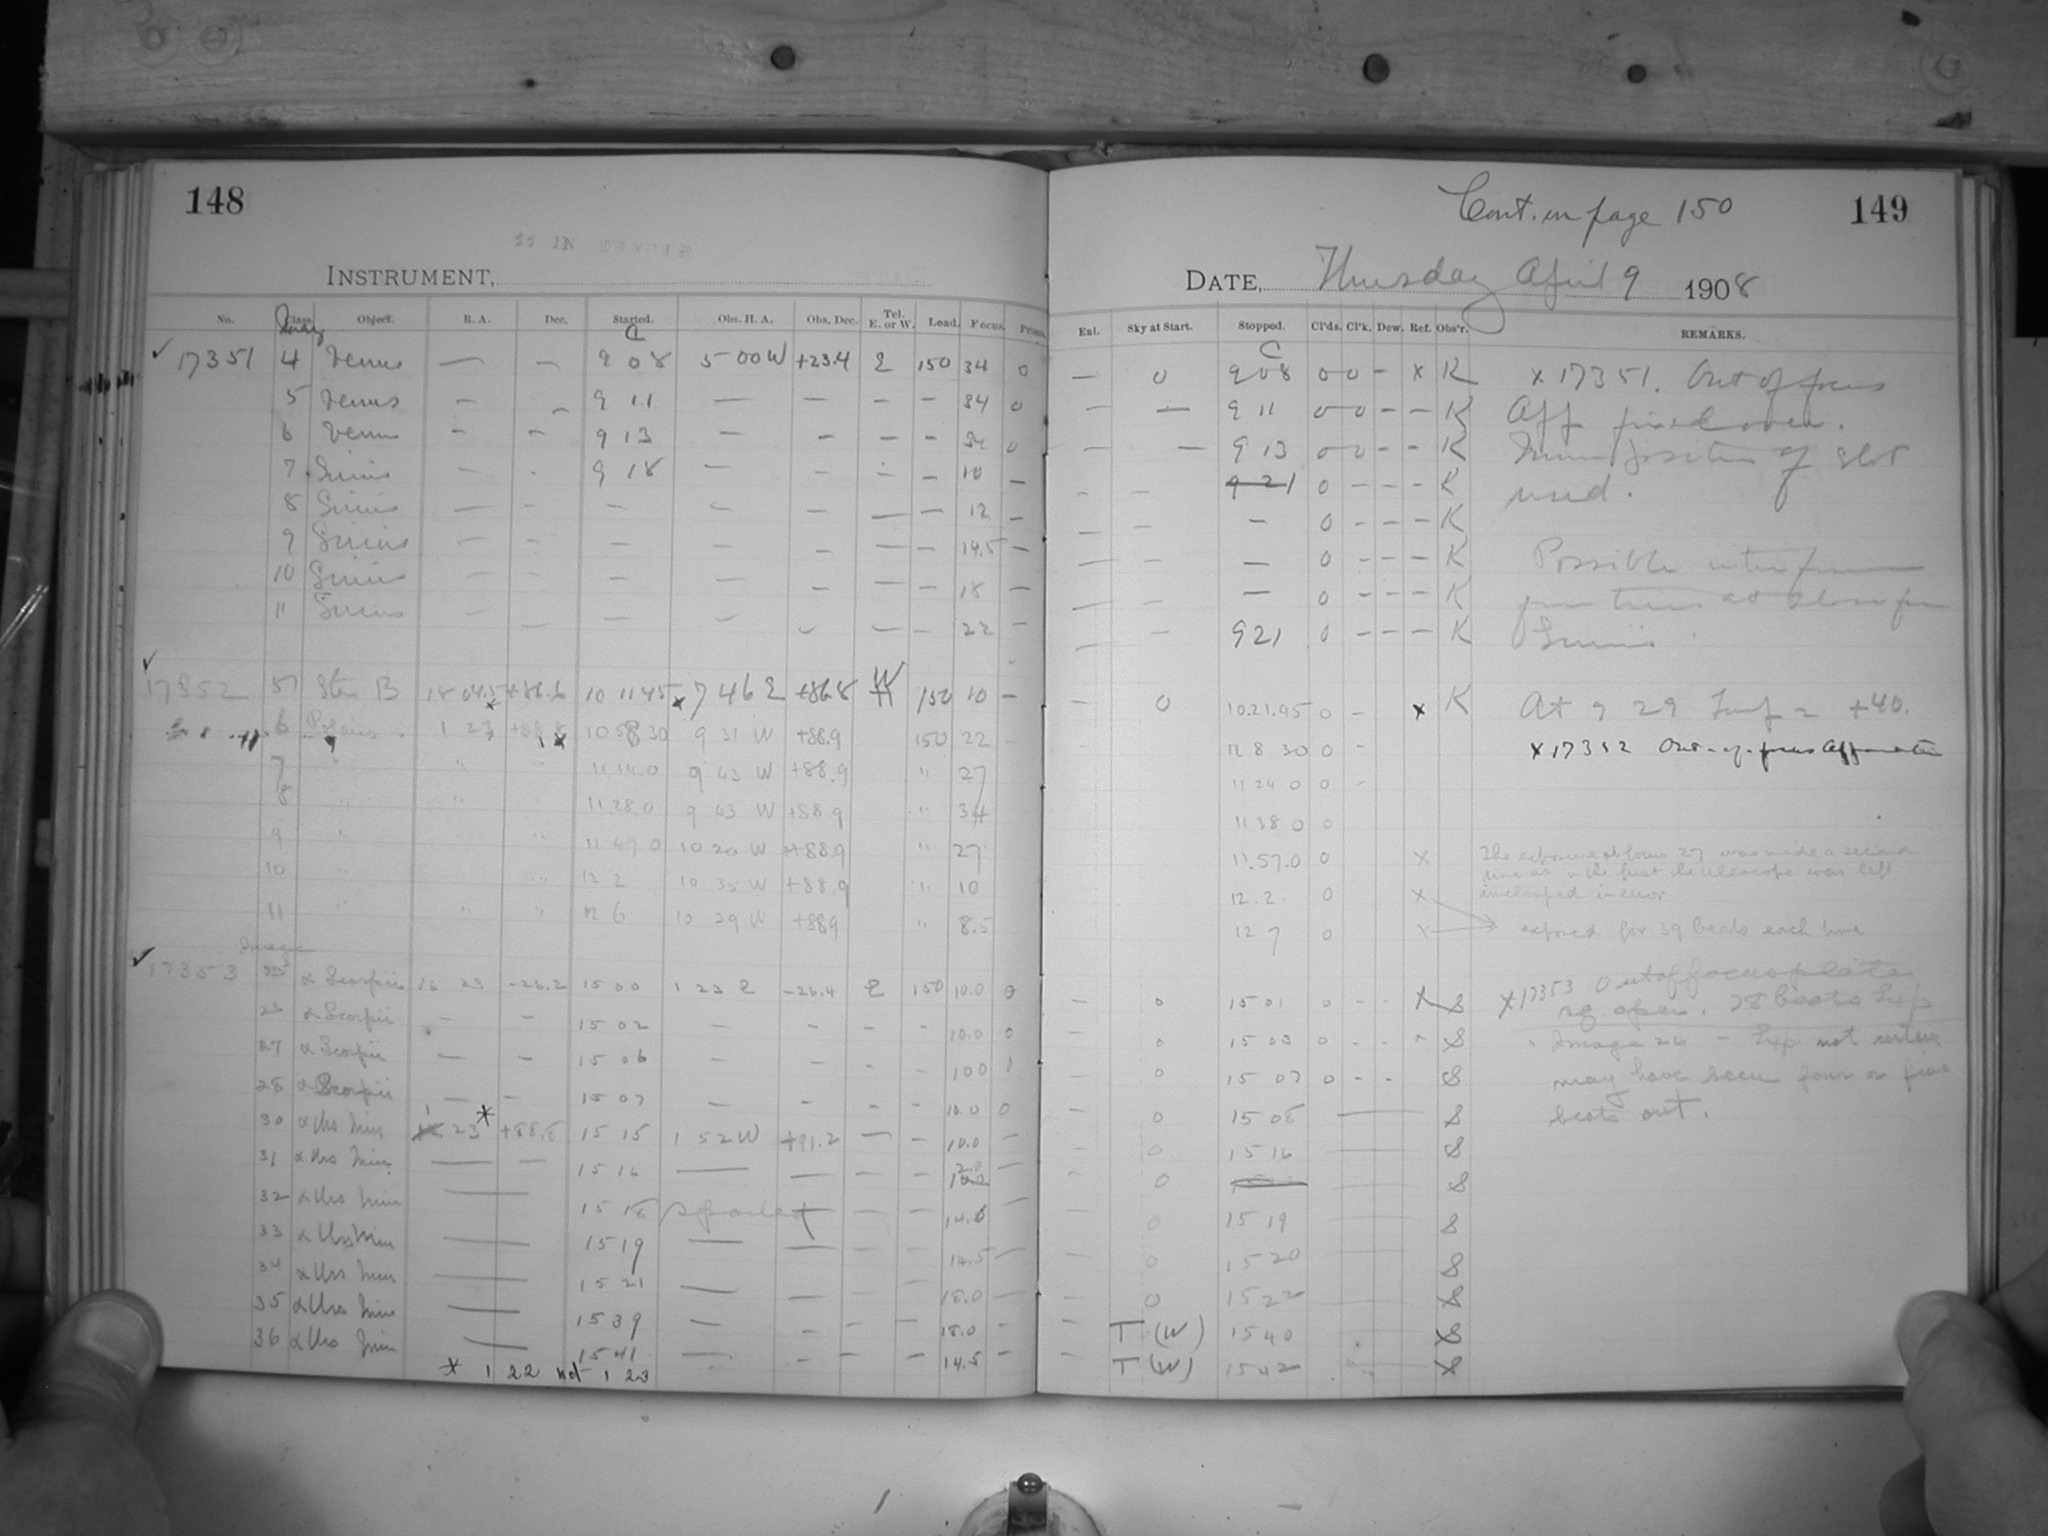 148
11 IN DRAPER
INSTRUMENT,
No. Class. Object. R. A. Dec. Started. Obs. H. A. Obs. Dec. Tel. E. or W. Load. Focus. Prisms.
Image C
17351 4 Venus — — 9 08 5 00 W +23.4 E 150 34 0
5 Venus — — 9 11 — — — — 34 0
6 Venus — — 9 13 — — — — 34 0
7 Sirius — - 9 18 — — — — 10 —
8 Sirius — — — — — — — 12 —
9 Sirius — — — — — — — 14.5 —
10 Sirius — — — — — 18 —
11 Sirius — — — — — — — 22 —
17352 5 Star B 18 04.5 +86.6 10 11 45 7 46 E +86.8 W 150 10 —
6 Polaris 1 23 +88.8 10 58 30 9 31 W +88.9 150 22
7 " " " 11 14.0 9 43 W +88.9 " 27
8 " " 11 28.0 9 43 W +88.9 " 34
9 " " 11 47 0 10 20 W +88.9 " 27
10 " " 12 2 10 35 W +88.9 " 10
11 " " " 12 6 10 29 W +88.9 " 8.5
Image
17353 α Scorpii 16 23 -26.2 15 00 1 23 E -26.4 E 150 10.0 0
26 α Scorpii — — 15 02 — — — — 10.0 0
27 α Scorpii — — 15 06 — — — — 10.0 1
28 α Scorpii — — 15 07 — — — — 10.0 0
30 α Urs Min 1 23* +88.8 15 15 1 52 W +91.2 — 10.0 —
31 α Urs Min — — 15 16 — — — — 12.0 —
32 α Urs Min — 15 18 spoiled — — — 14.5 —
33 α Urs Min — 15 19 — — — — 14.5 —
34 α Urs Min — 15 21 — — — — 18.0 —
35 α Urs Min — 15 39 — — — — 18.0 —
36 α Urs Min — 15 41 — — — — 14.5 —
* 1 22 not 1 23
Cont. on page 150 149
DATE, Thursday April 9 1908
Enl. Sky at Start. Stopped. Cl'ds. Cl'k. Dew. Ref. Obs'r. REMARKS.
C
— 0 9 08 0 0 - x K x 17351. Out of focus
— — 9 11 0 0 - - K
— — 9 13 0 0 - - K position of slot
- — 9 21 0 - - - K used.
— — — 0 - - - K
— — — 0 - - - K Possible
— — — 0 - - - K from trees at close for
— — 9 21 0 - - - K Sirius
- 0 10.21.45 0 - x K At 9 29 Temp = +40.
12 8 30 0 - x 17352 Out-of-focus
11 24 0 0 -
11 38 0 0
11.57.0 0 x The exposure at focus 27 was made a second
time as in the first the telescope was left
12.2. 0 x unclamped in error
12 7 0 x exposed for 39 beats each time
x 17353 Out of focus plate
— 0 15 01 0 - - x S 28 beats Exp
— 0 15 03 0 - - S Image 26 — Exp. not certain
0 15 07 0 - - S may have been four or five
— 0 15 08 — S beats out.
0 15 16 — S
- 0 — S
0 15 19 — S
0 15 20 — S
0 15 22 — S
- T (W) 15 40 S
- T (W) 15 42 S